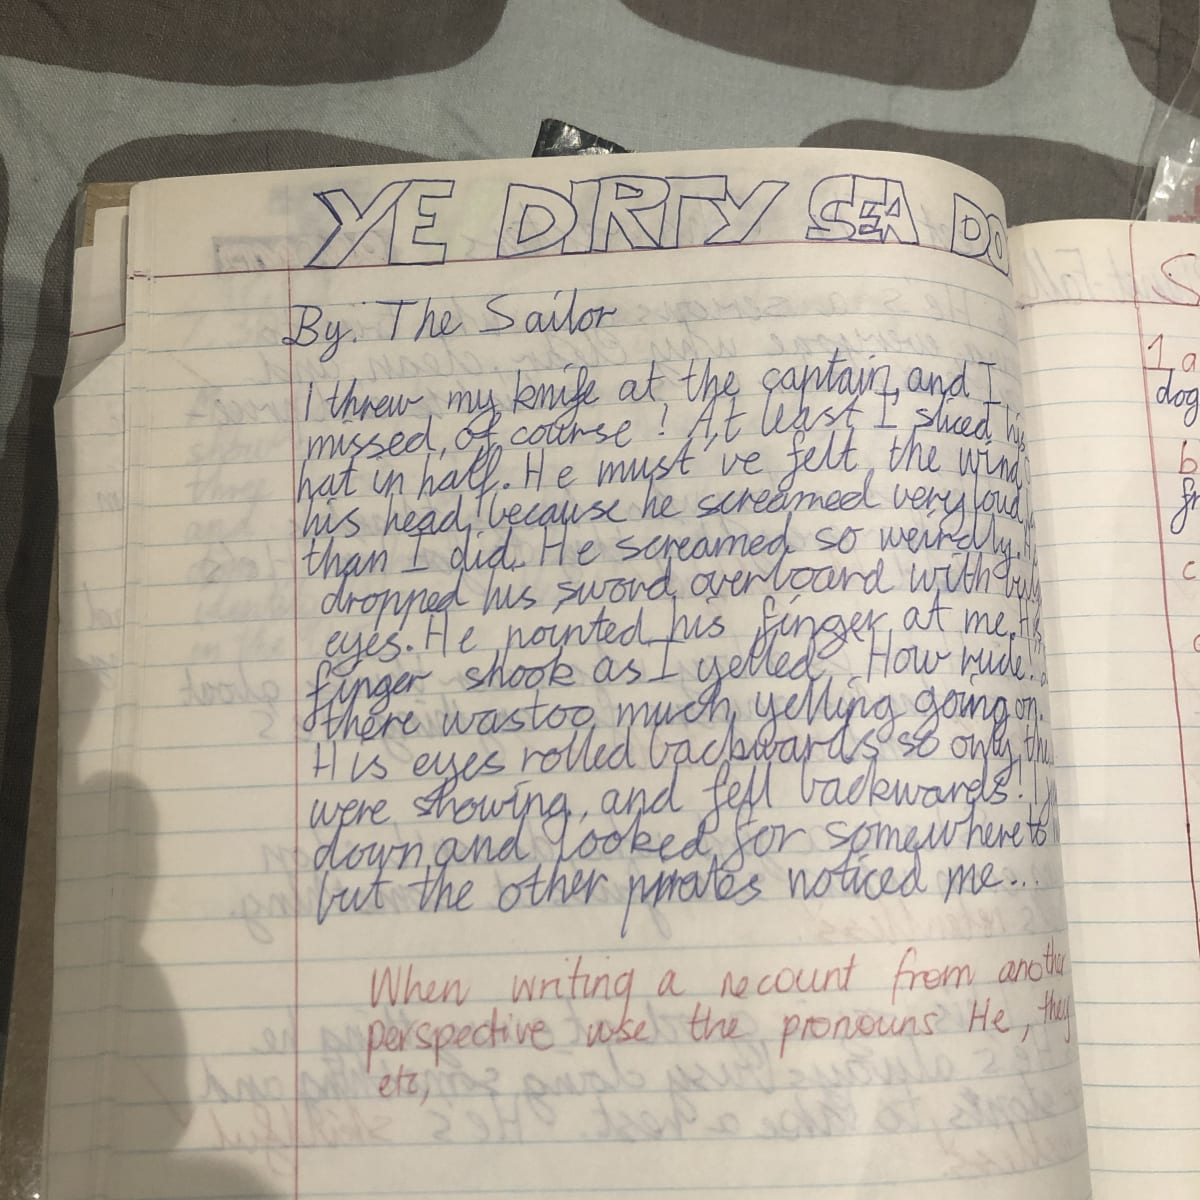 YE DIRTY SEA DO
By. The Sailor
I threw my knife at the captain, and I
missed, of course! At least I sliced his
hat in half. He must've felt the wind
his head, because he screamed very loud
than I did. He screamed so weirdly.
dropped his sword overboard with
eyes. He pointed his finger at me. His
finger shook as I yelled. How rude.
there was too much yelling going on.
His eyes rolled backwards so only the
were showing, and fell backwards! I
down and looked for somewhere to
but the other pirates noticed me...
When writing a recount from another
perspective use the pronouns He, they
etc,
1 a
dog
b
fr
c